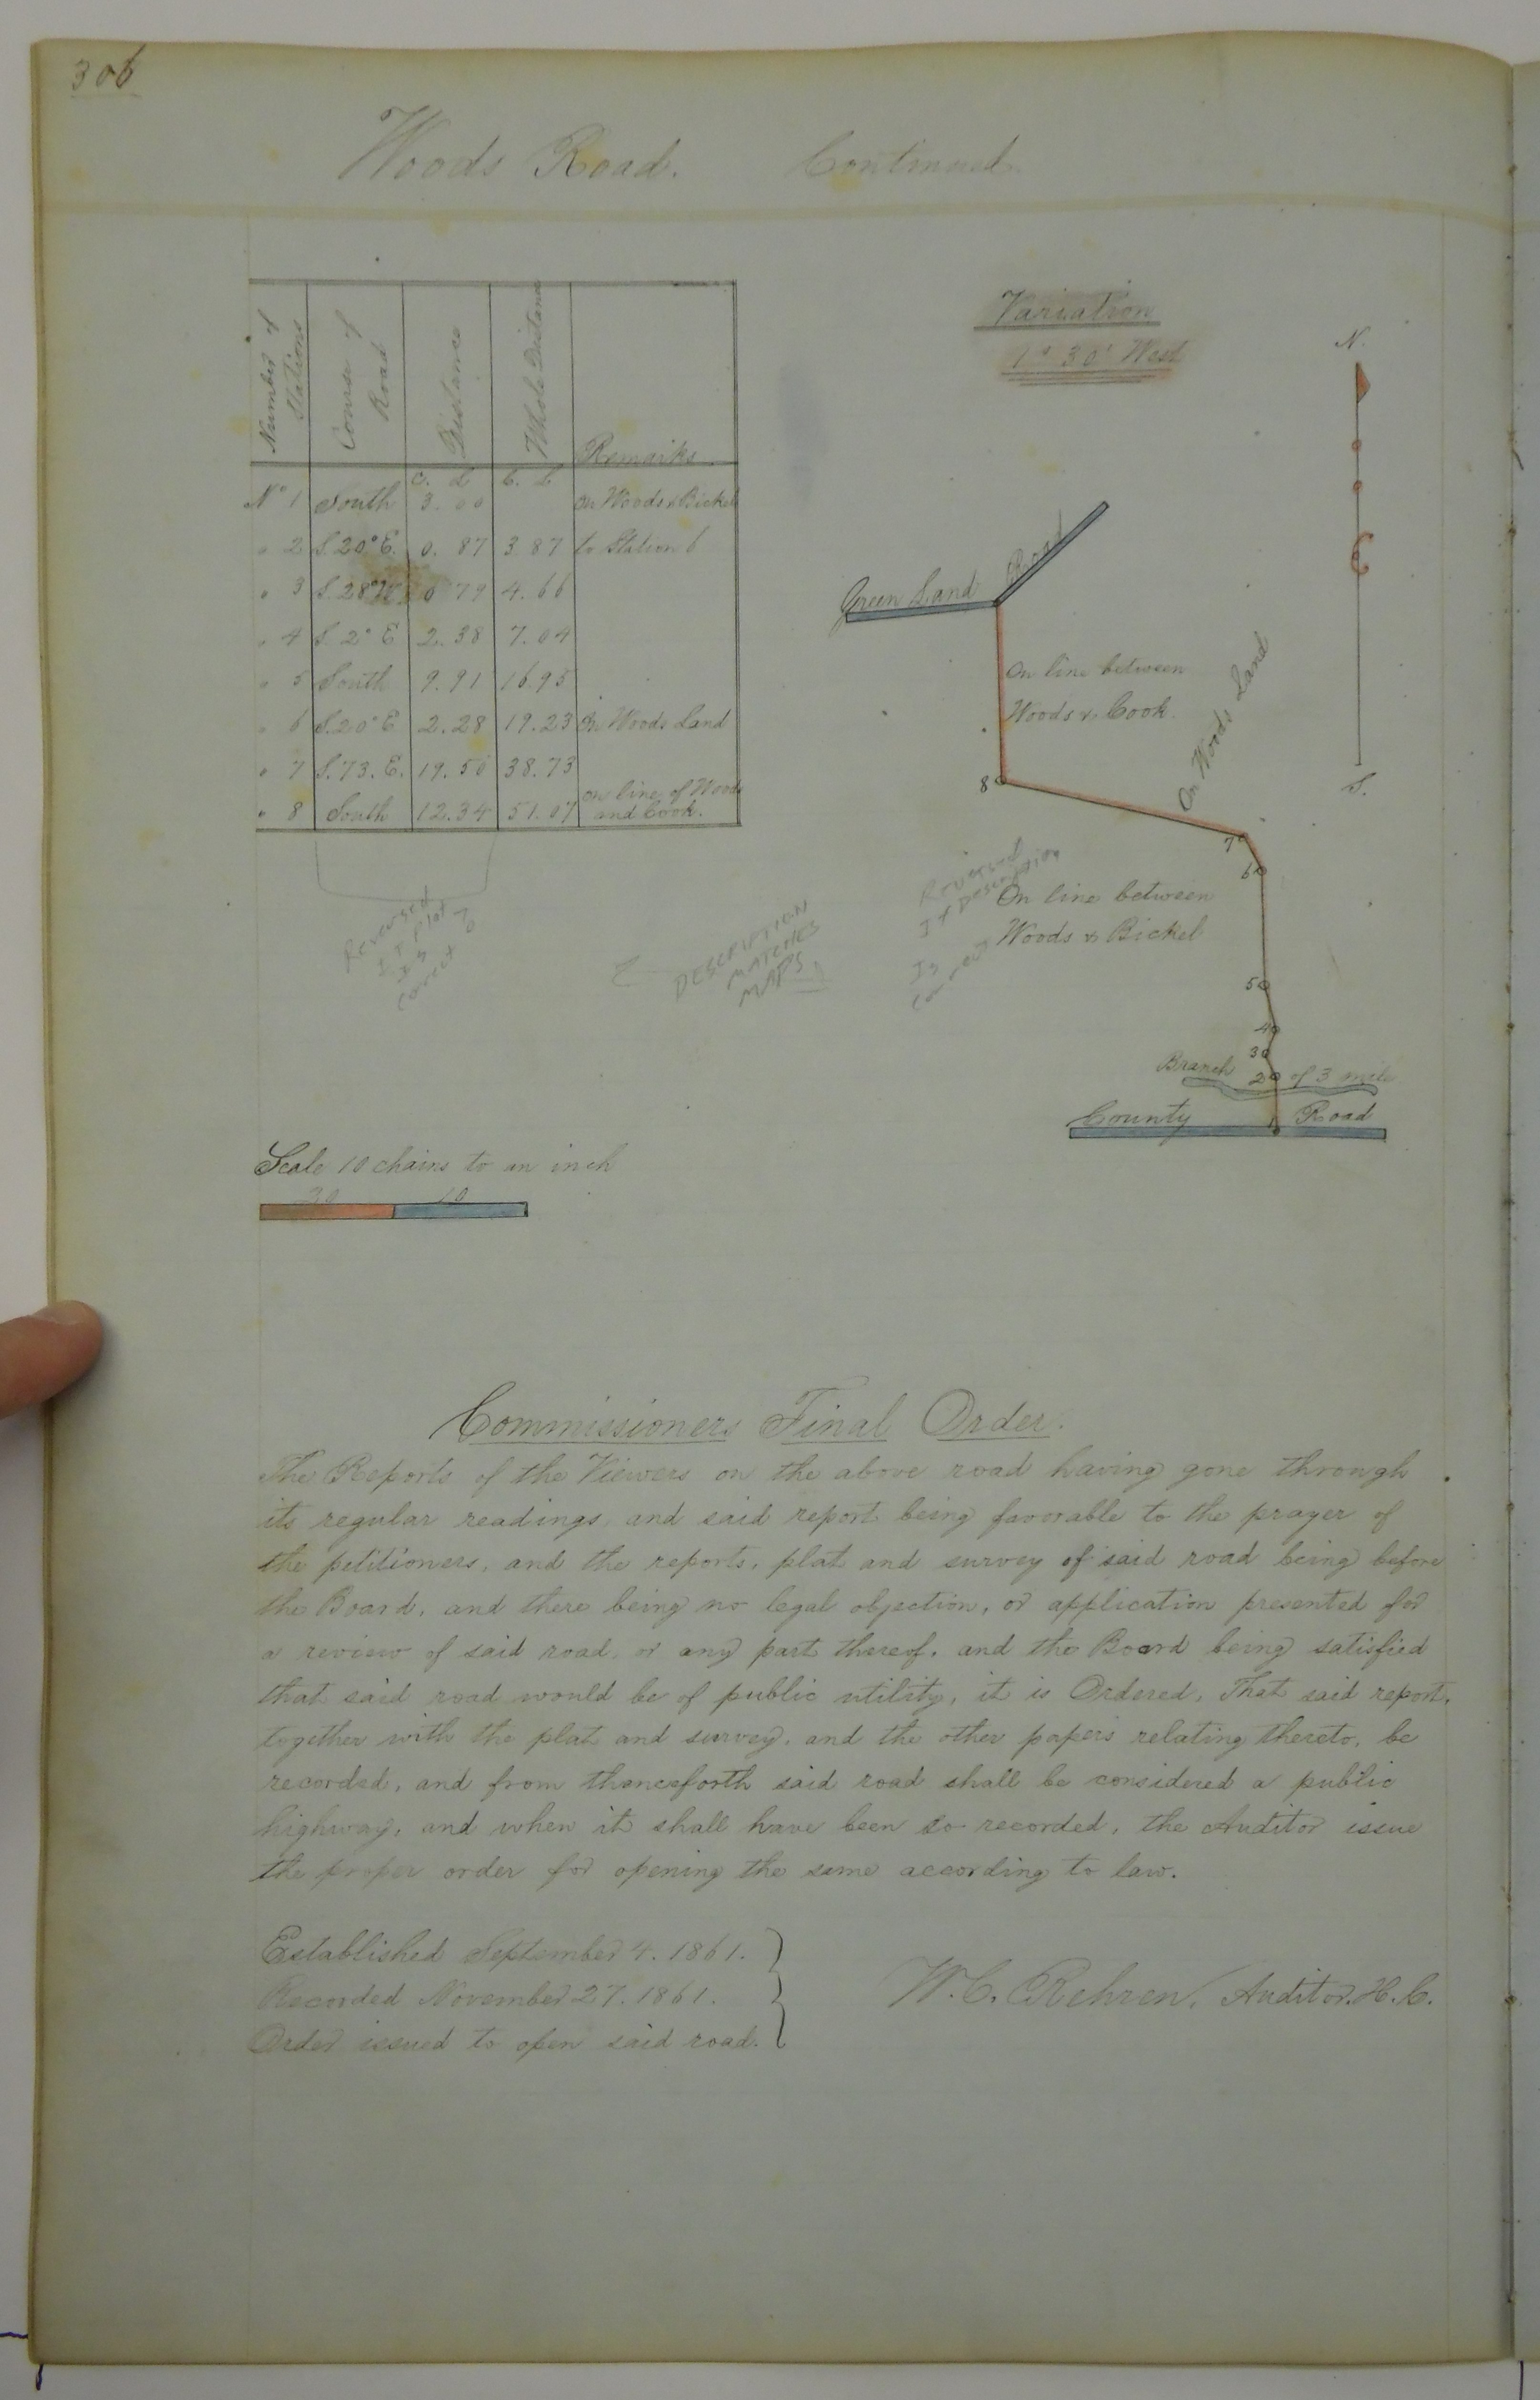 306
Woods Road. Continued.
Number of Stations
Course of Road
Distance
Whole Distance
Remarks
C. L C. L
No 1 South 3.00 on Woods & Bickel
" 2 S.20°E. 0.87 3.87 to Station 6
" 3 S.28°W. 0 79 4.66
" 4 S. 2° E 2.38 7.04
" 5 South 9.91 16.95
" 6 S.20°E 2.28 19.23 On Woods Land
" 7 S.73.E. 19.50 38.73
" 8 South 12.34 51.07 on line of Woods and Cook.
Variation
1° 30' West
N.
S.
Green Land Road
On line between
Woods & Cook.
On Woods Land
8
7
6
On line between
Woods & Bickel
5
4
3
Branch 2 of 3 mile
County 1 Road
Reversed
If Plot
Is
Correct
DESCRIPTION
MATCHES
MAPS
Reversed
If Description
Is
Correct
Scale 10 chains to an inch
20 10
Commissioners Final Order.
The Reports of the Viewers on the above road having gone through
its regular readings, and said report being favorable to the prayer of
the petitioners, and the reports, plat and survey of said road being before
the Board, and there being no legal objection, or application presented for
a review of said road, or any part thereof, and the Board being satisfied
that said road would be of public utility, it is Ordered, That said report,
together with the plat and survey, and the other papers relating thereto, be
recorded, and from thenceforth said road shall be considered a public
highway, and when it shall have been so recorded, the Auditor issue
the proper order for opening the same according to law.
Established September 4. 1861.
Recorded November 27. 1861.
Order issued to open said road.
W. C. Rehren, Auditor. H. C.